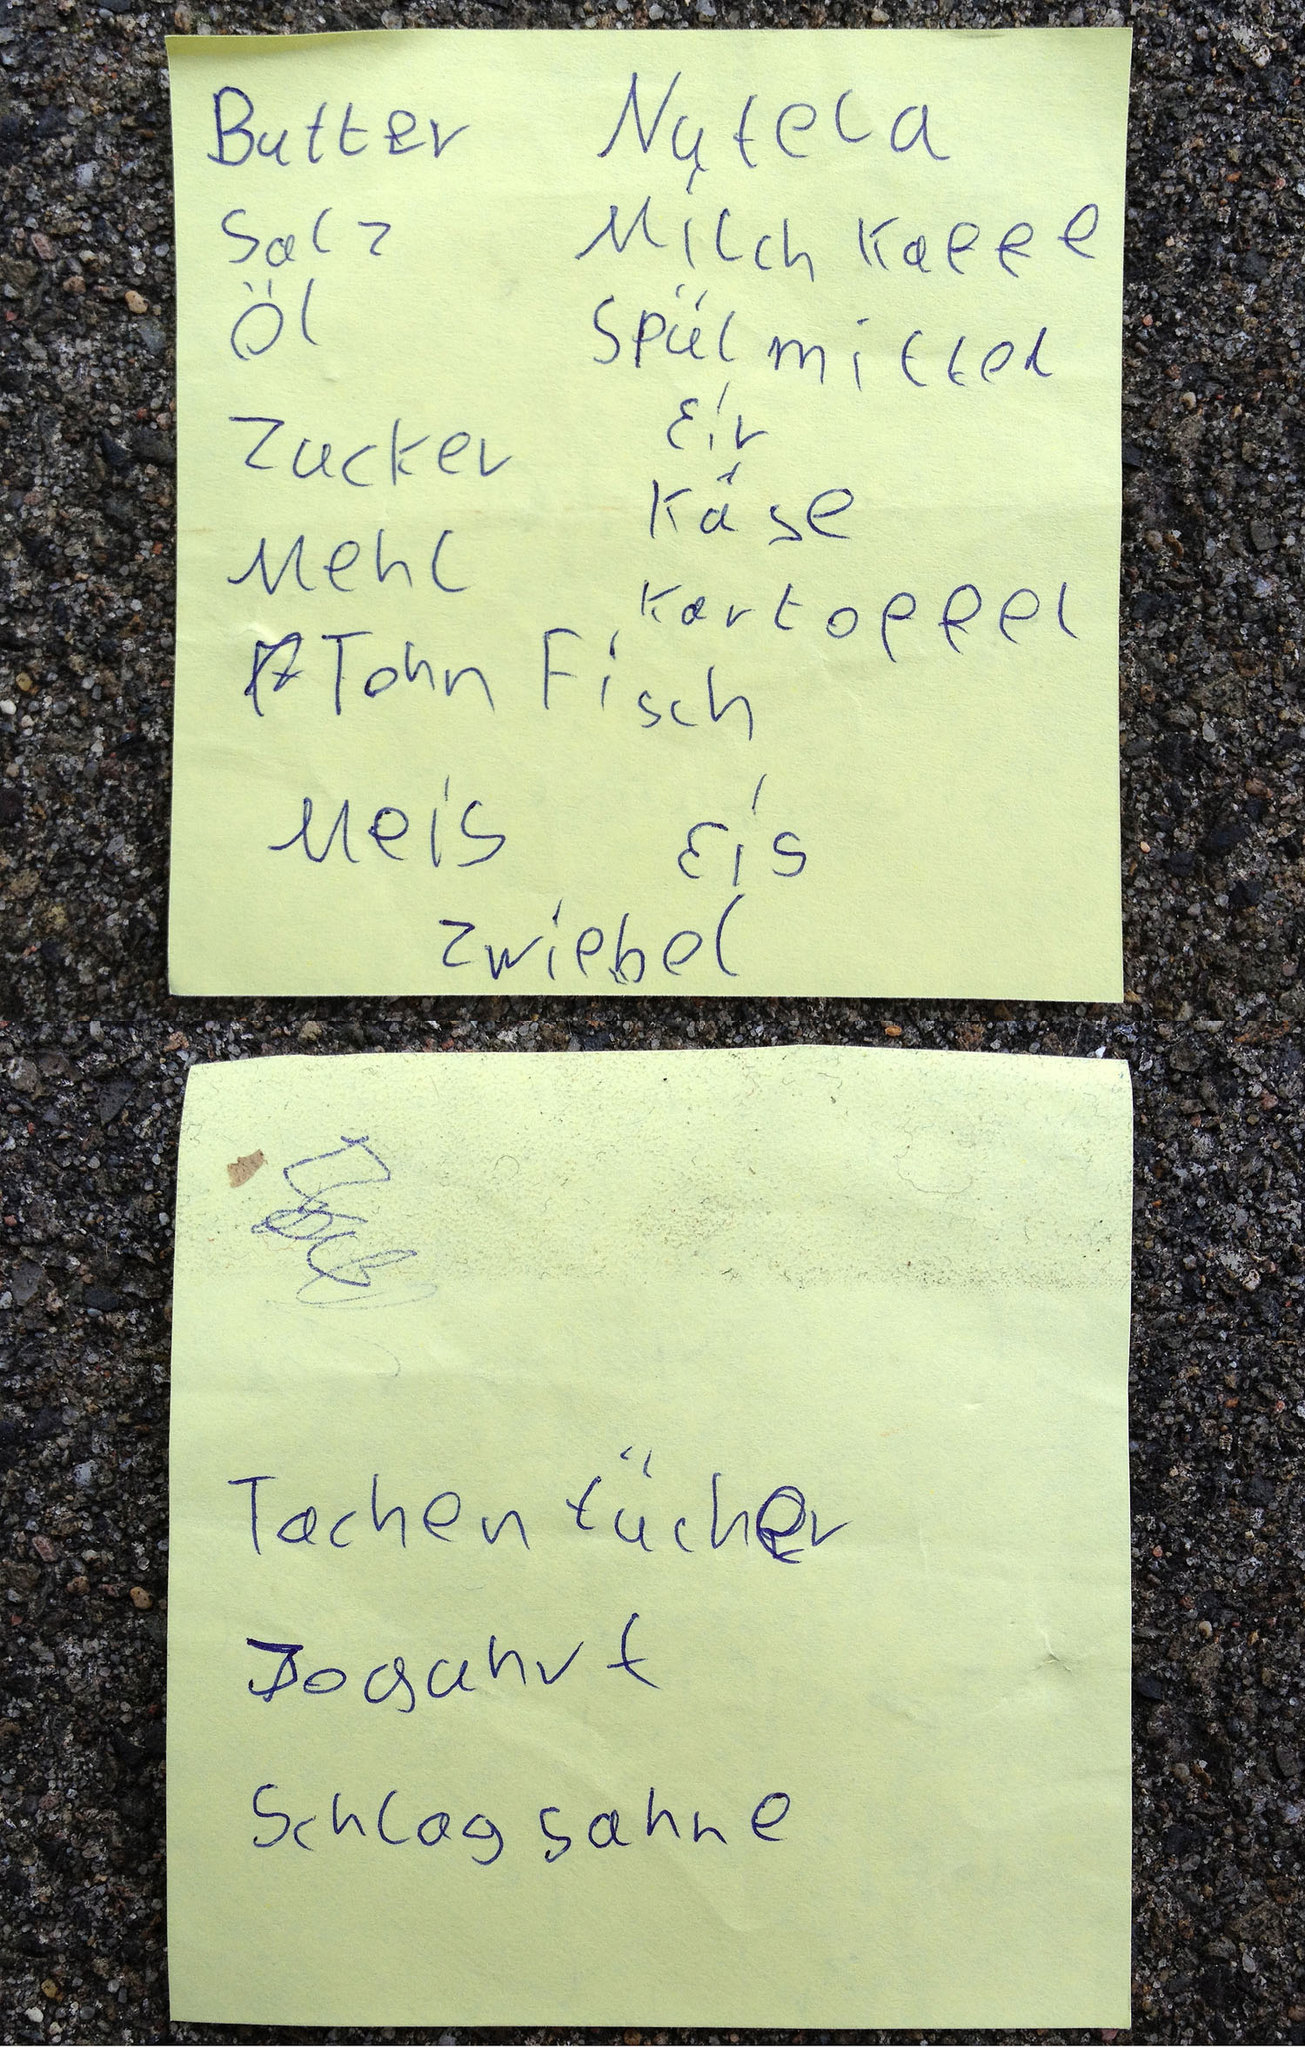 Butter
Salz
Öl
Zucker
Mehl
Tohn Fisch
Meis
Nutela
Milch Kaffe
Spülmittel
Eir
Käse
Kartoffel
Eis
Zwiebel
Tachentücher
Jogahrt
Schlagsahne